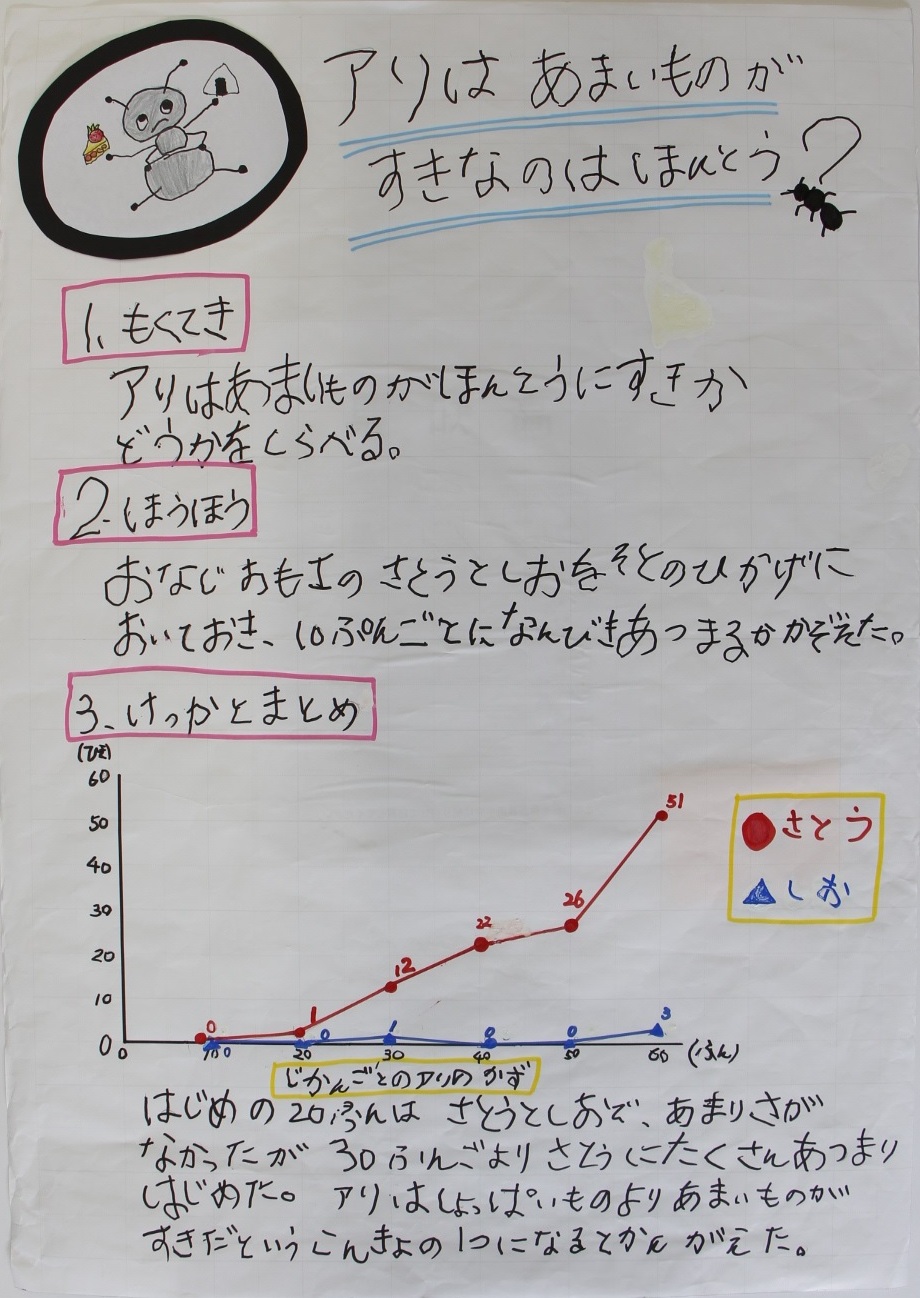 アリは あまいものが
すきなのはほんとう?
1、もくてき
アリはあまいものがほんとうにすきか
どうかをくらべる。
2.ほうほう
おなじおもさの さとうとしおをそとのひかげに
おいておき、10ぷんごとになんびきあつまるかかぞえた。
3、けっかとまとめ
(ひき)
60
50
40
30
20
10
0
0 1 12 22 26 51
0 0 1 0 0 3
0 10 20 30 40 50 60 (ふん)
さとう
しお
じかんごとのアリのかず
はじめの20ふんは さとうとしおで、あまりさが
なかったが 30ふんごより さとうにたくさんあつまり
はじめた。 アリはしょっぱいものよりあまいものが
すきだというこんきょの1つになるとかんがえた。